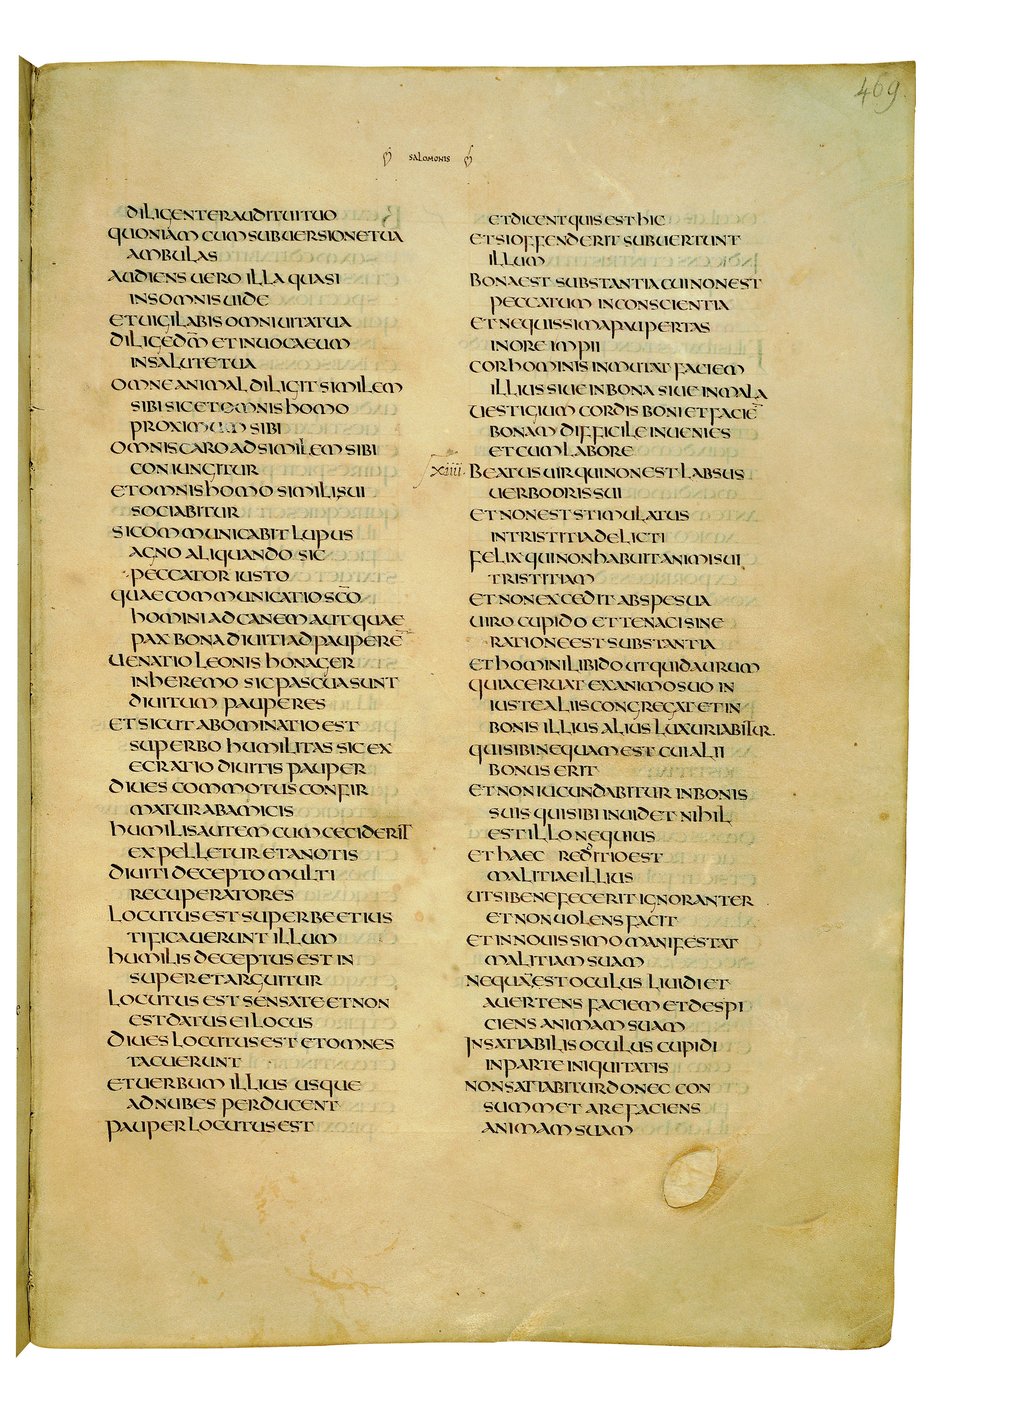 469
SALOMONIS
DILIGENTER AUDITUI TUO
QUONIAM CUM SUBUERSIONE TUA
AMBULAS
AUDIENS UERO ILLA QUASI
IN SOMNIS UIDE
ET UIGILABIS OMNI UITA TUA
DILIGE D̄M ET INUOCA EUM
IN SALUTE TUA
OMNE ANIMAL DILIGIT SIMILEM
SIBI SIC ET OMNIS HOMO
PROXIMUM SIBI
OMNIS CARO AD SIMILEM SIBI
CONIUNGITUR
ET OMNIS HOMO SIMILI SUI
SOCIABITUR
SI COMMUNICABIT LUPUS
AGNO ALIQUANDO SIC
PECCATOR IUSTO
QUAE COMMUNICATIO SC̄O
HOMINI AD CANEM AUT QUAE
PAX BONA DIUITI AD PAUPERĒ
UENATIO LEONIS HONAGER
IN HEREMO SIC PASCUA SUNT
DIUITUM PAUPERES
ET SICUT ABOMINATIO EST
SUPERBO HUMILITAS SIC EX
ECRATIO DIUITIS PAUPER
DIUES COMMOTUS CONFIR
MATUR AB AMICIS
HUMILIS AUTEM CUM CECIDERIT
EXPELLETUR ET A NOTIS
DIUITI DECEPTO MULTI
RECUPERATORES
LOCUTUS EST SUPERBE ET IUS
TIFICAUERUNT ILLUM
HUMILIS DECEPTUS EST IN
SUPER ET ARGUITUR
LOCUTUS EST SENSATE ET NON
EST DATUS EI LOCUS
DIUES LOCUTUS EST ET OMNES
TACUERUNT
ET UERBUM ILLIUS USQUE
AD NUBES PERDUCENT
PAUPER LOCUTUS EST
ET DICENT QUIS EST HIC
ET SI OFFENDERIT SUBUERTUNT
ILLUM
BONA EST SUBSTANTIA CUI NON EST
PECCATUM IN CONSCIENTIA
ET NEQUISSIMA PAUPERTAS
IN ORE IMPII
COR HOMINIS INMUTAT FACIEM
ILLIUS SIUE IN BONA SIUE IN MALA
UESTIGIUM CORDIS BONI ET FACIĒ
BONAM DIFFICILE INUENIES
ET CUM LABORE
XIIII BEATUS UIR QUI NON EST LABSUS
UERBO ORIS SUI
ET NON EST STIMULATUS
IN TRISTITIA DELICTI
FELIX QUI NON HABUIT ANIMI SUI
TRISTITIAM
ET NON EXCEDIT AB SPE SUA
UIRO CUPIDO ET TENACI SINE
RATIONE EST SUBSTANTIA
ET HOMINI LIBIDO UT QUID AURUM
QUI ACERUAT EX ANIMO SUO IN
IUSTE ALIIS CONGREGAT ET IN
BONIS ILLIUS ALIUS LUXURIABITUR
QUI SIBI NEQUAM EST CUI ALII
BONUS ERIT
ET NON IUCUNDABITUR IN BONIS
SUIS QUI SIBI INUIDET NIHIL
EST ILLO NEQUIUS
ET HAEC REDITIO EST
MALITIAE ILLIUS
UT SI BENE FECERIT IGNORANTER
ET NON UOLENS FACIT
ET IN NOUISSIMO MANIFESTAT
MALITIAM SUAM
NEQUA EST OCULUS LIUIDI ET
AUERTENS FACIEM ET DESPI
CIENS ANIMAM SUAM
INSATIABILIS OCULUS CUPIDI
IN PARTE INIQUITATIS
NON SATIABITUR DONEC CON
SUMMET AREFACIENS
ANIMAM SUAM